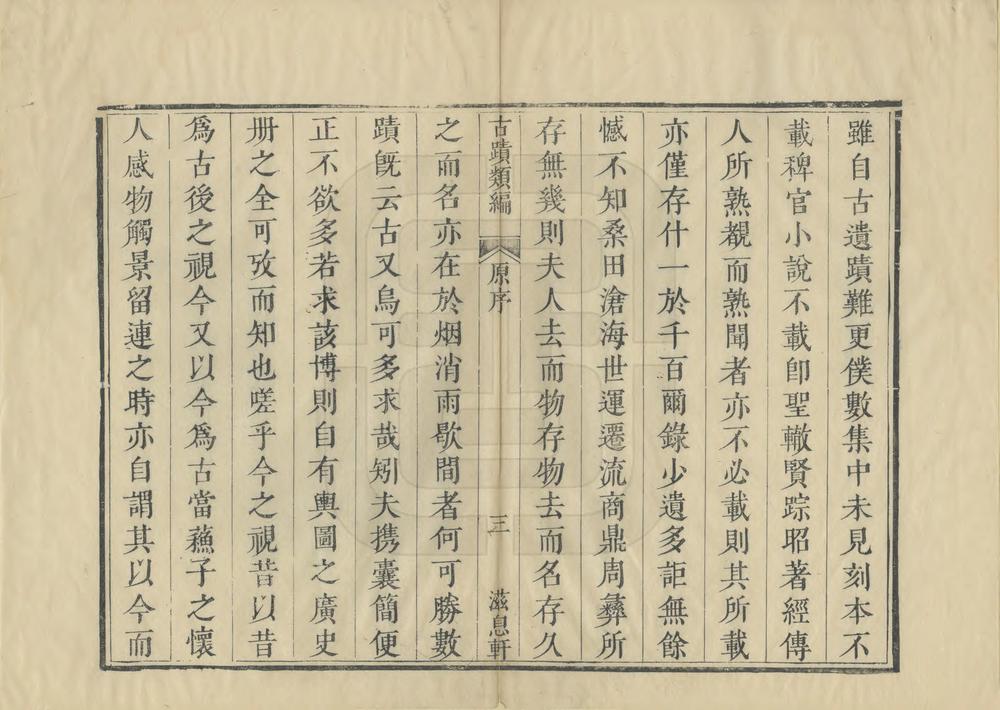 雖自古遺蹟難更僕數集中未見刻本不
載稗官小說不載卽聖轍賢踪昭著經傳
人所熟覩而熟聞者亦不必載則其所載
亦僅存什一於千百爾錄少遺多詎無餘
憾不知桑田滄海世運遷流商鼎周彝所
存無幾則夫人去而物存物去而名存久
古蹟類編 原序 三 滋息軒
之而名亦在於烟消雨歇間者何可勝數
蹟旣云古又烏可多求哉矧夫携囊簡便
正不欲多若求該博則自有輿圖之廣史
册之全可攷而知也嗟乎今之視昔以昔
爲古後之視今又以今爲古當蘓子之懷
人感物觸景留連之時亦自謂其以今而